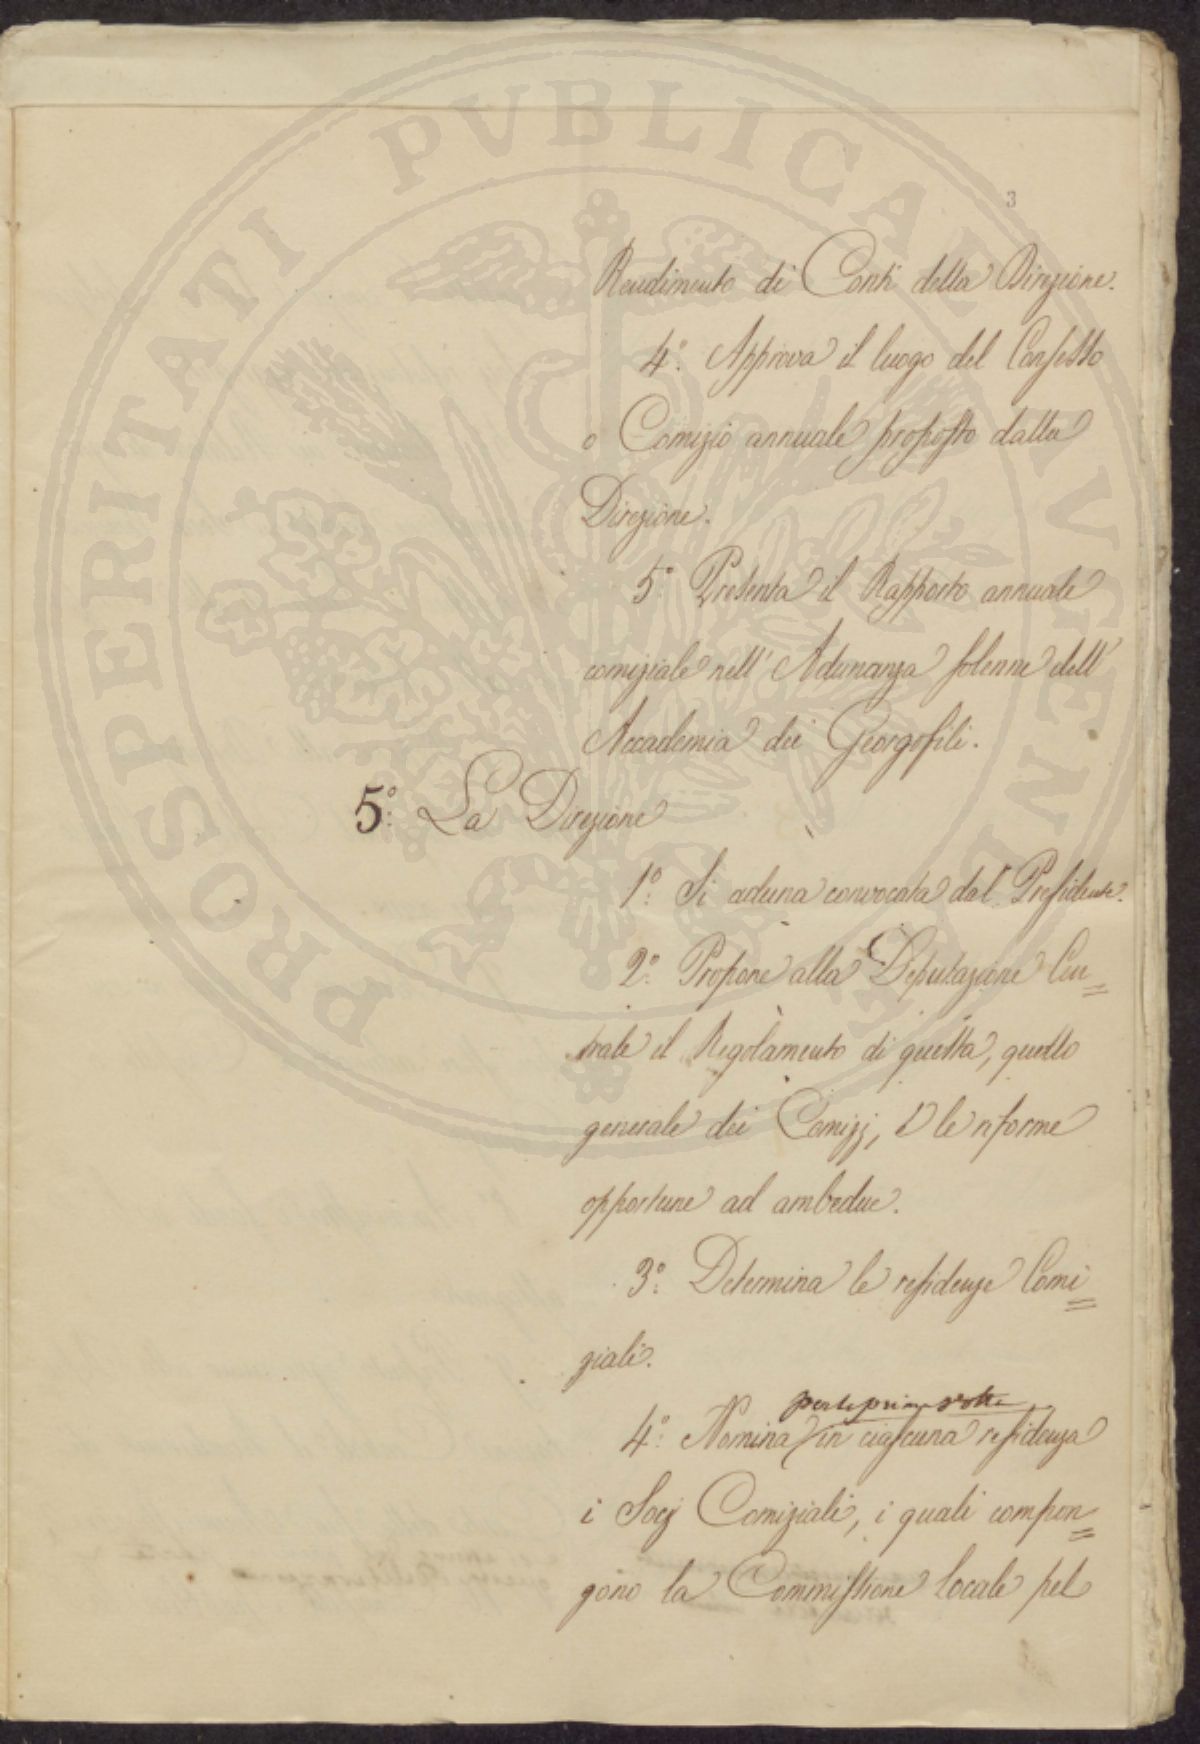 PROSPERITATI PUBLICAE AUGENDAE
3
Rendimento di Conti della Direzione.
4.° Approva il luogo del Consesso
o Comizio annuale proposto dalla
Direzione.
5.° Presenta il Rapporto annuale
comiziale nell' Adunanza solenne dell'
Accademia dei Georgofili.
5.° La Direzione
1.° Si aduna convocata dal Presidente.
2.° Propone alla Deputazione Cen=
trale il Regolamento di questa, quello
generale dei Comizj, e le riforme
opportune ad ambedue.
3.° Determina le residenze Comi=
ziali.
per la prima volta
4.° Nomina in ciascuna residenza
i Socj Comiziali, i quali compon=
gono la Commissione locale pel